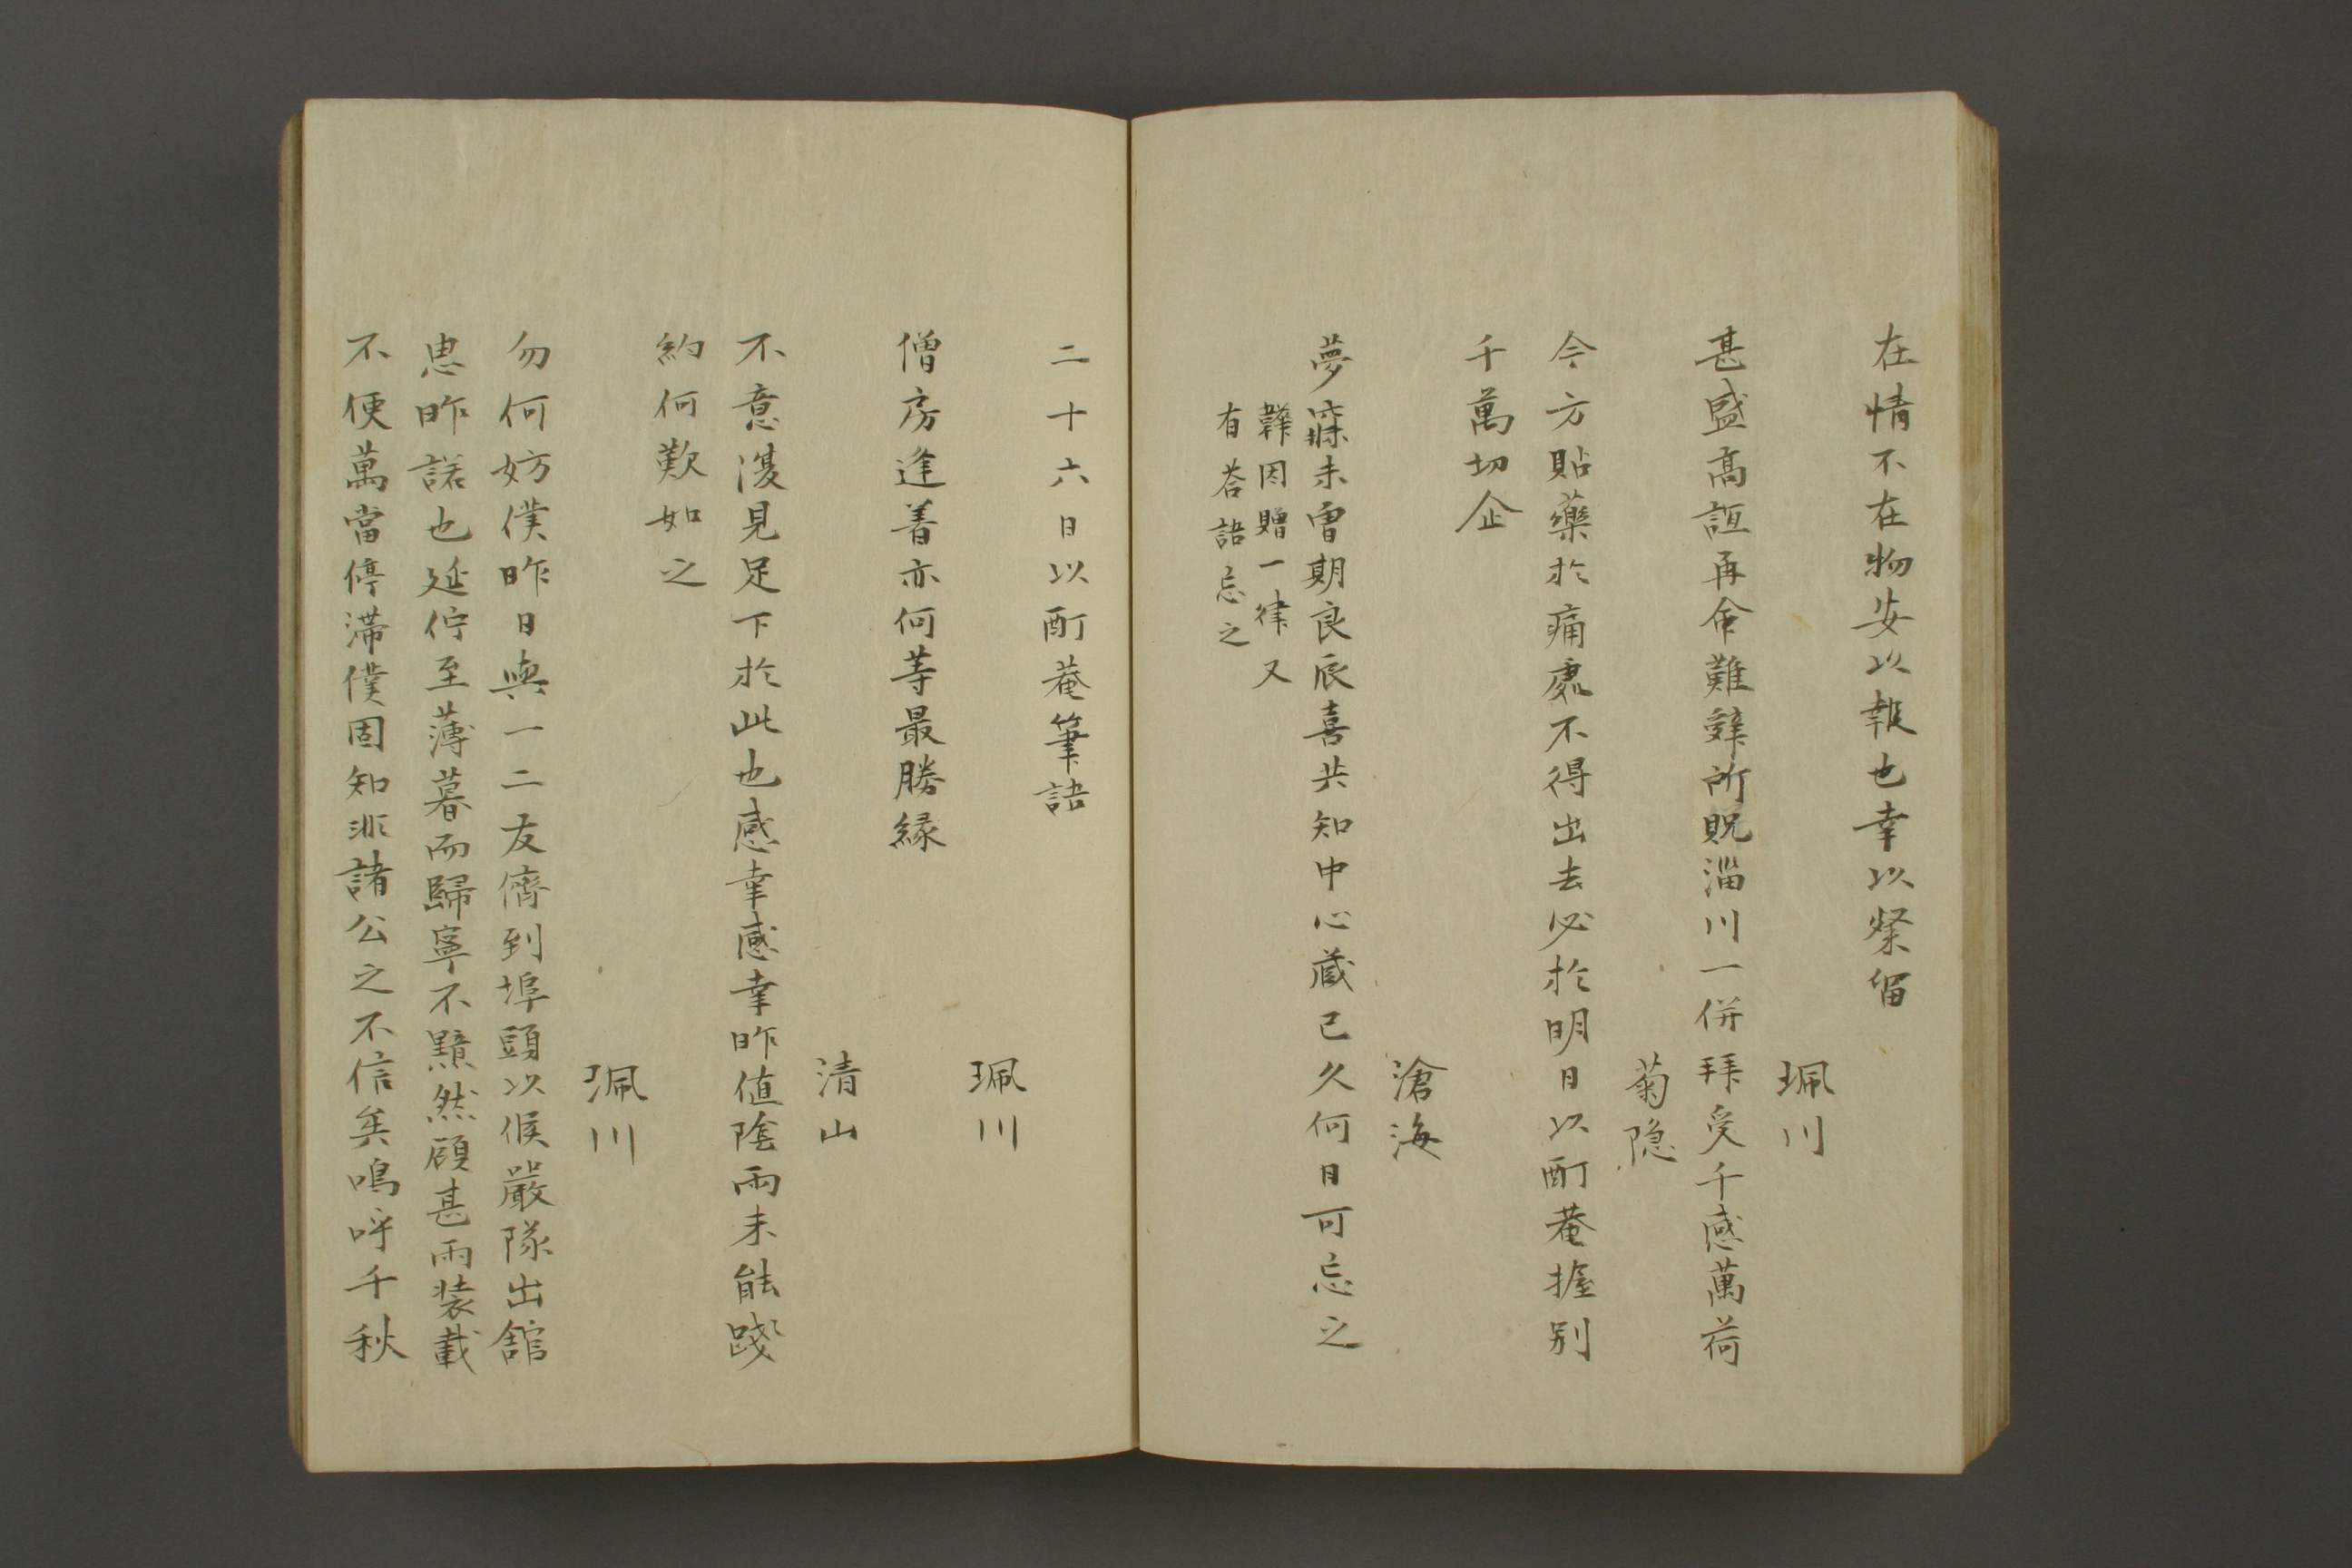 在情不在物安以報也幸以粲留
珮川
甚盛高誼再命難辭所貺淄川一併拜受千感萬荷
菊隐
今方貼藥於痛處不得出去必於明日以酊菴握别
千萬切企
滄海
夢寐未曽期良辰喜共知中心蔵已久何日可忘之
韡因贈一律又
有荅語忘之
二十六日以酊菴筆語
珮川
僧房逢着亦何等最勝緣
清山
不意復見足下於此也感幸感幸昨値陰雨未能踐
約何歎如之
珮川
勿何妨僕昨日與一二友儕到埠頭以候嚴隊出舘
思昨諾也延佇至薄暮而歸寧不黯然頋甚雨装載
不便萬當停滞僕固知非諸公之不信矣鳴呼千秋